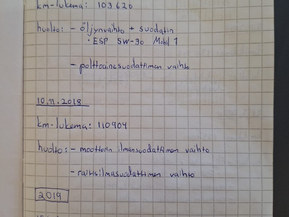 km-lukema: 103620
huolto: - öljynvaihto + suodatin
· ESP 5W-30 Mobil 1
- polttoainesuodattimen vaihto
10.11.2018
km-lukema: 110904
huolto: - moottorin ilmansuodattimen vaihto
- raitisilmasuodattimen vaihto
2019